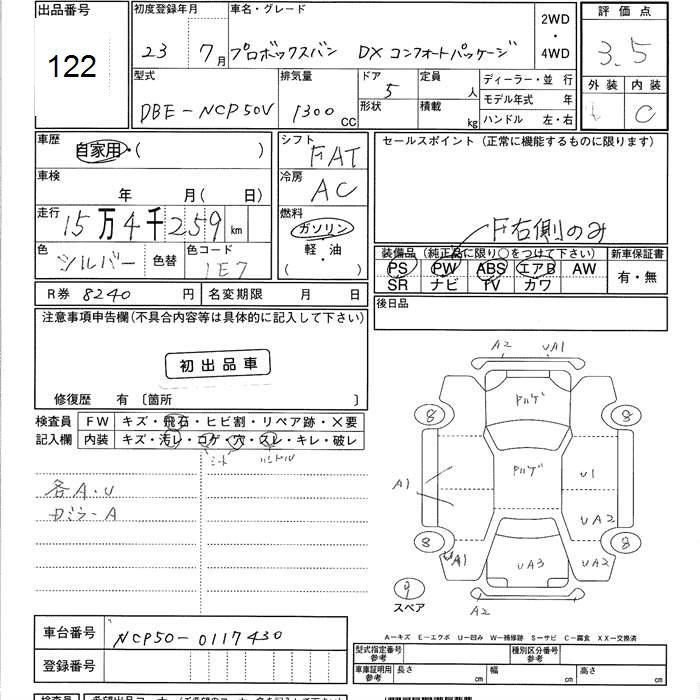 出品番号 初度登録年月 車名・グレード 2WD・4WD 評価点
122 23 7月 プロボックスバン DX コンフォートパッケージ 3.5
型式 排気量 ドア 5 定員 人 ディーラー・並 行 外装 内装
DBE-NCP50V 1300 CC 形状 積載 kg モデル年式 年 C
ハンドル 左・右
車歴 自家用・( ) シフト FAT セールスポイント(正常に機能するものに限ります)
車検 年 月(日) 冷房 AC
走行 15万4千259 km 燃料 ガソリン F右側のみ
色 シルバー 色替 色コード 1E7 軽・油 ( )
装備品(純正品に限り○をつけて下さい) 新車保証書
PS PW ABS エアB AW 有・無
SR ナビ TV カワ
R券 8240 円 名変期限 月 日 後日品
注意事項申告欄(不具合内容等は具体的に記入して下さい)
初出品車
修復歴 有 〔箇所 〕
検査員 FW キズ・飛石・ヒビ割・リペア跡・X要
記入欄 内装 キズ・汚レ・コゲ・穴・スレ・キレ・破レ
シート ハンドル
各A・U
カミラーA
A2 UA1
ドルゲ
8 8
ドルゲ
A1 U1
UA2
8 8
UA1 UA3 UA2
9
スペア A2
A-キズ E-エクボ U-凹み W-補修跡 S-サビ C-腐食 XX-交換済
車台番号 NCP50-0117430
登録番号
型式指定番号 参考 種別区分番号 参考
車庫証明用 参考 長さ cm 幅 cm 高さ cm